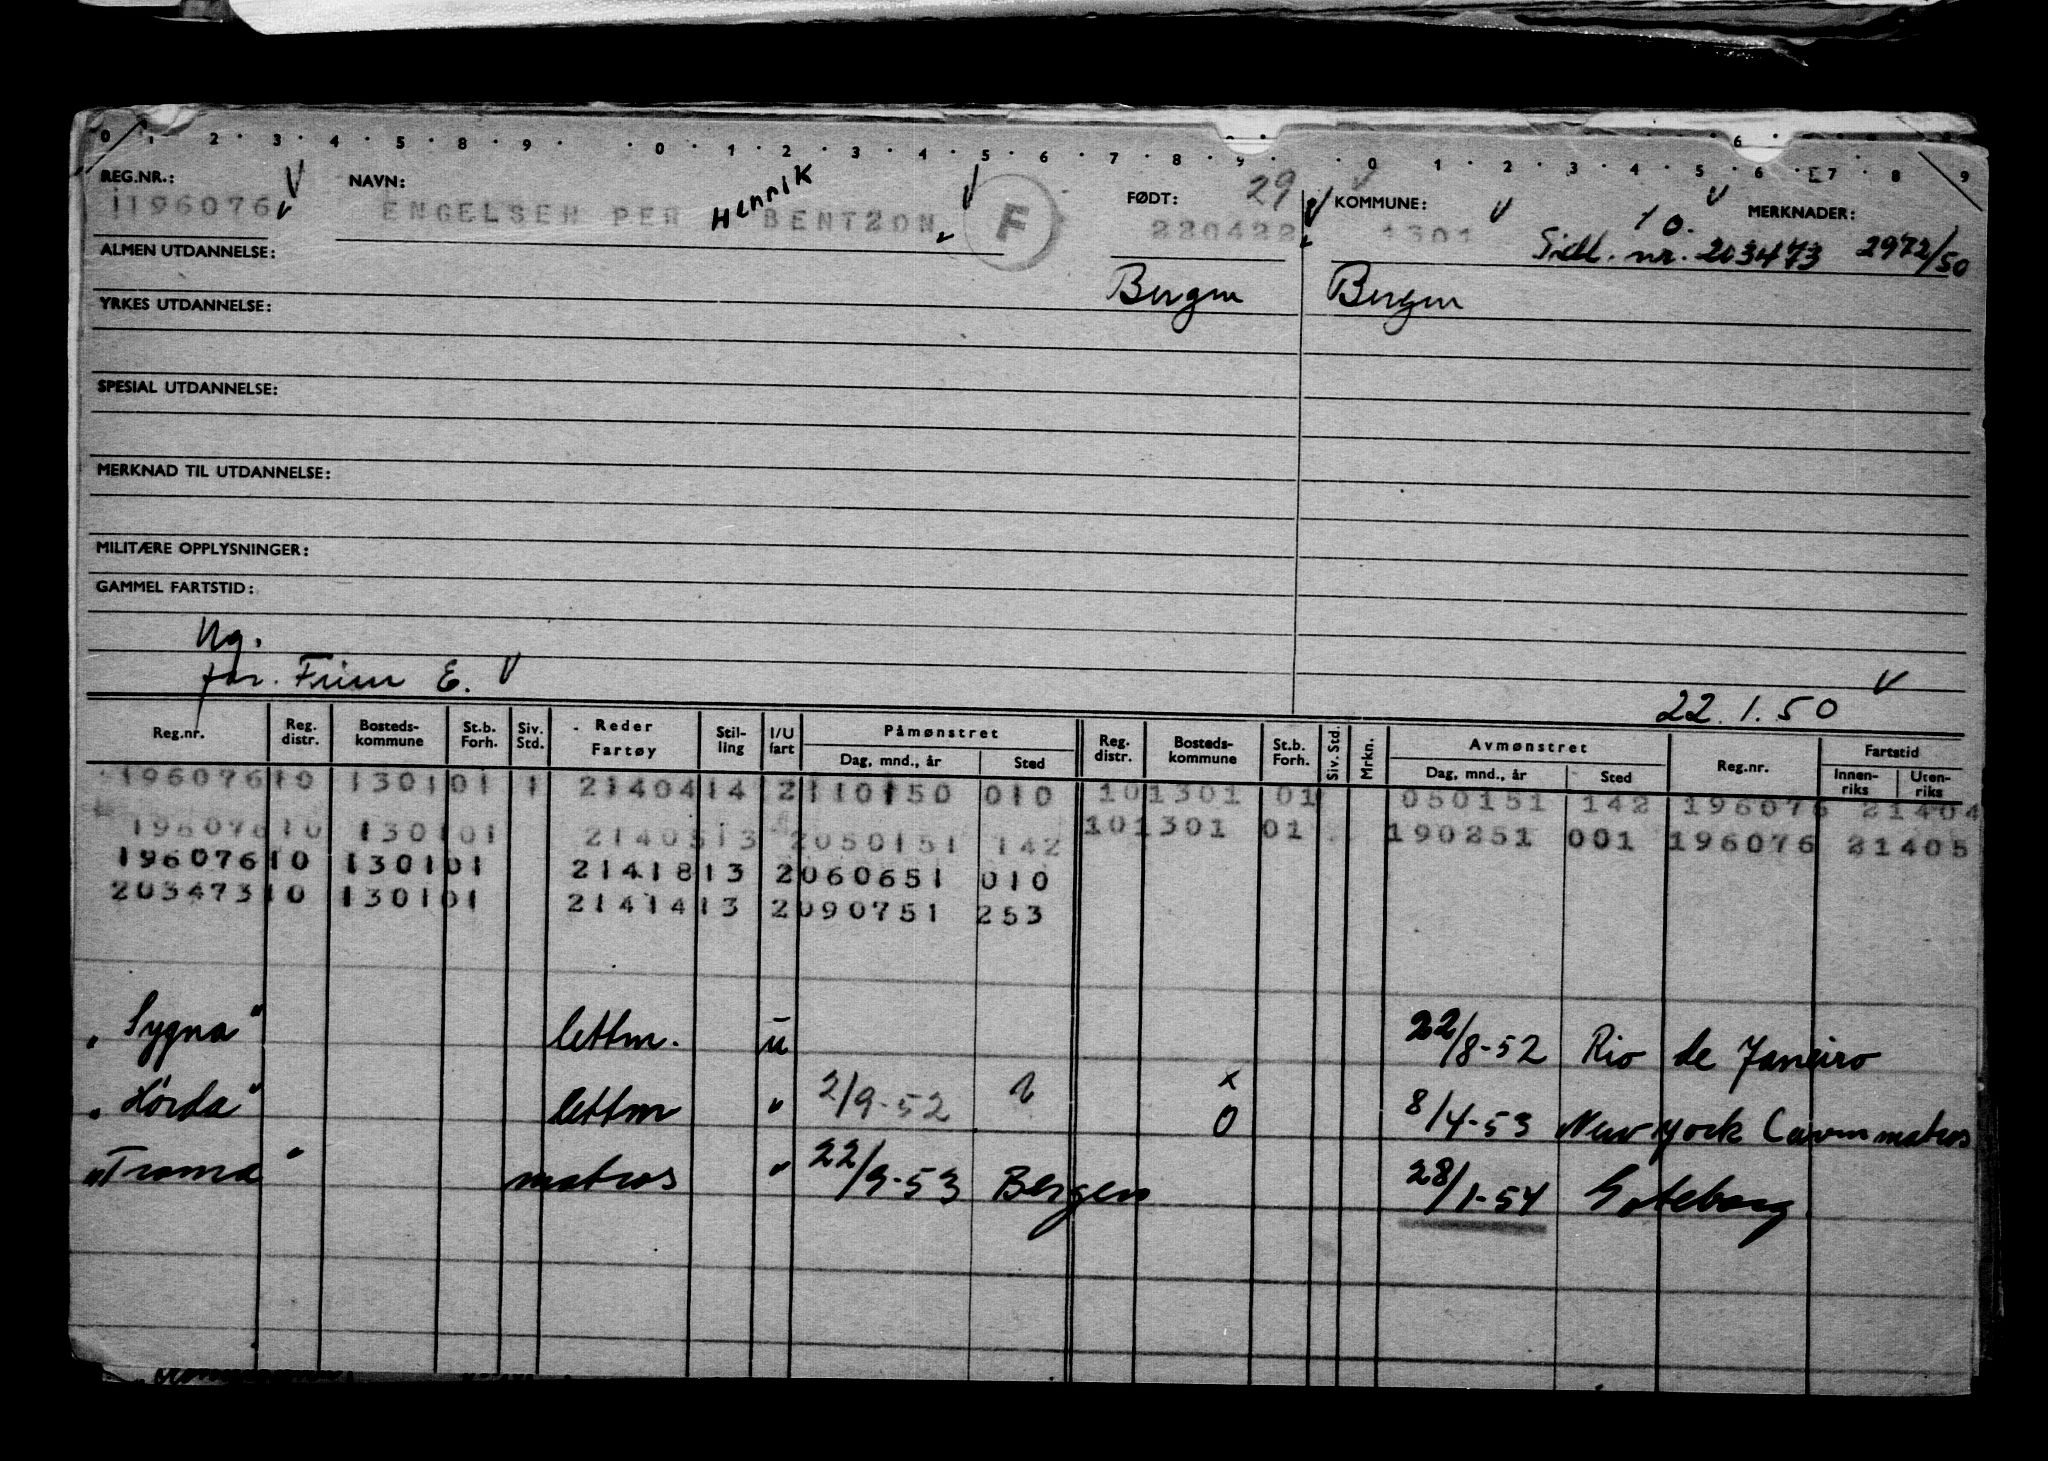 0 · 1 · 2 · 3 · 4 · 5 · 8 · 9 · · 0 · 1 · 2 · 3 · 4 · 5 · 6 · 7 · 8 · 9 · · 0 · 1 · 2 · 3 · 4 · 5 · 6 · 7 · 8 · 9
6
REG.NR.: NAVN: FØDT: 29 KOMMUNE: 10. MERKNADER:
1196076 ENGELSEN PER Henrik BENTZON F 220422 1301 Sidl. nr. 203473 2972/50
ALMEN UTDANNELSE: Bergen Bergen
YRKES UTDANNELSE:
SPESIAL UTDANNELSE:
MERKNAD TIL UTDANNELSE:
MILITÆRE OPPLYSNINGER:
GAMMEL FARTSTID:
Ug.
far. E. 22.1.50
Reg.nr. Reg. distr. Bosteds-kommune St.b. Forh. Siv. Std. Reder Fartøy Stil-ling I/U fart Påmønstret Dag, mnd., år Sted Reg. distr. Bosteds-kommune St.b. Forh. Siv. Std. Mrkn. Avmønstret Dag, mnd., år Sted Reg.nr. Fartstid Innen-riks Uten-riks
19607610 130101 1 21404 14 2110150 010 101301 01 050151 142 196076 21404
19607610 130101 21405 13 2050151 142 101301 01 190251 001 196076 21405
19607610 130101 21418 13 2060651 010
20347310 130101 21414 13 2090751 253
"Sygna" lettm. u 22/8-52 Rio de Janeiro
"Hørda" lettm " 2/9-52 x 0 8/4-53 New York matros
"Troma" matros " 22/9-53 Bergen 28/1-54 Goteborg